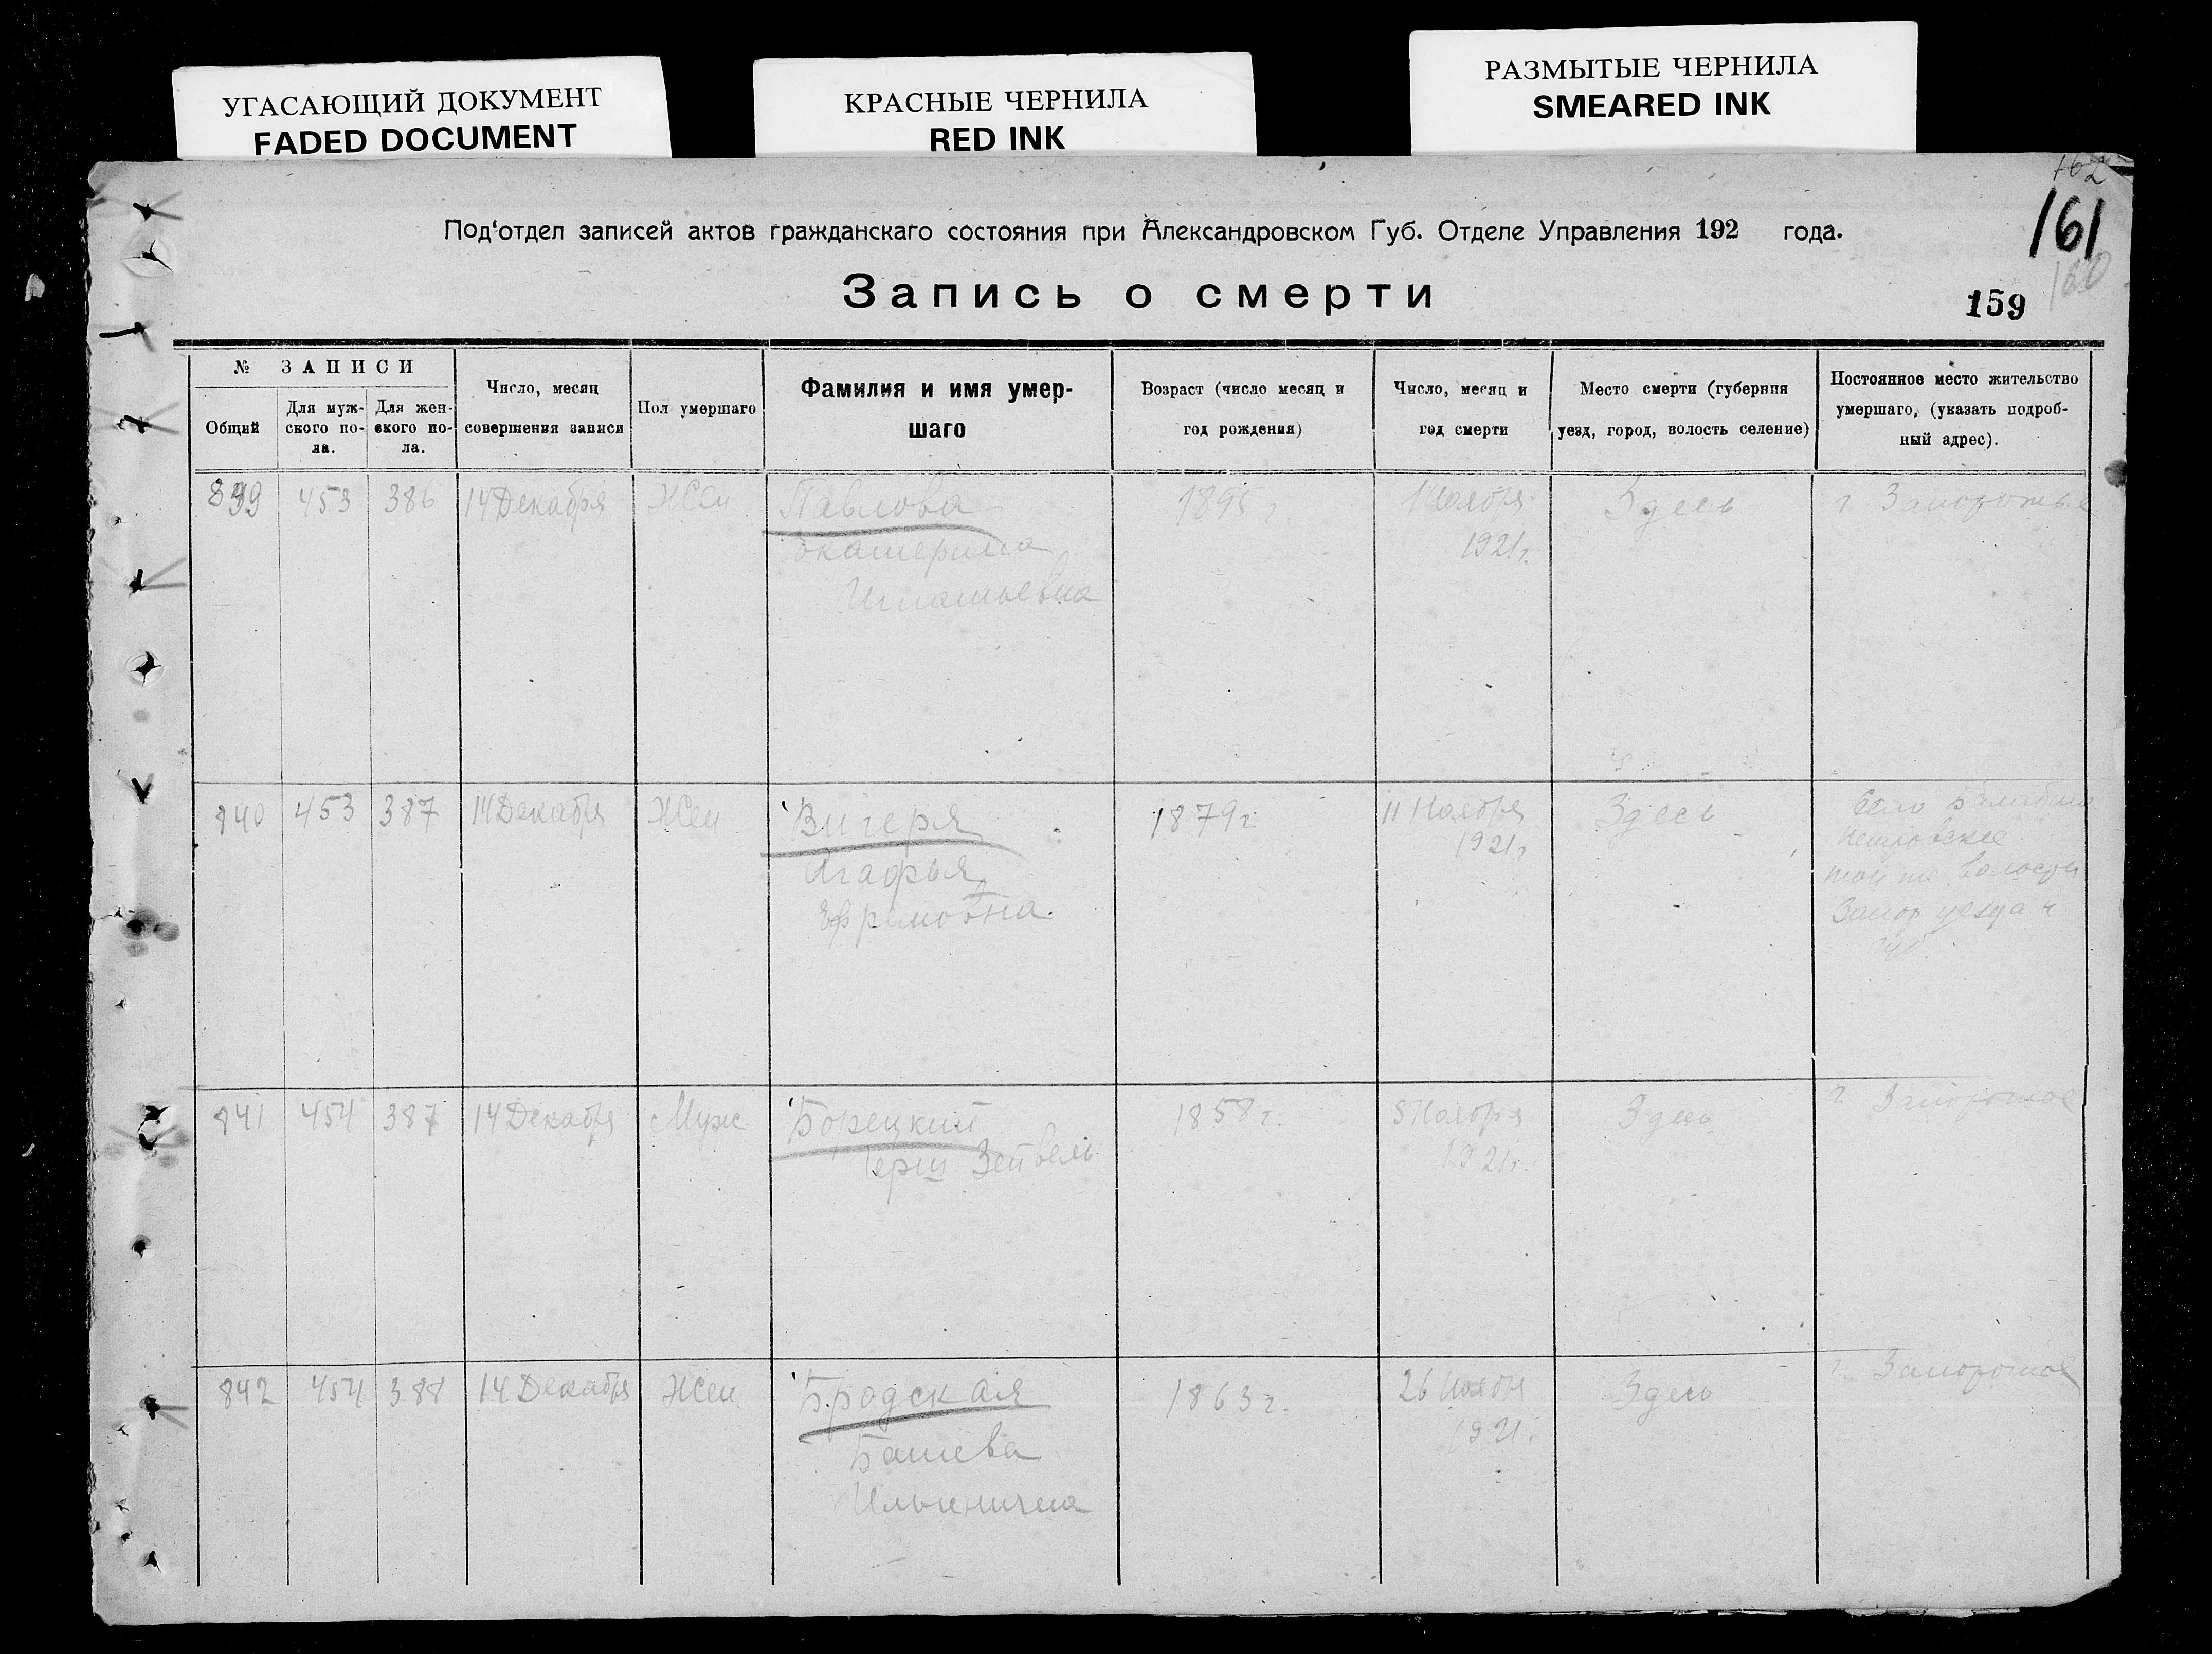 УГАСАЮЩИЙ ДОКУМЕНТ
FADED DOCUMENT
КРАСНЫЕ ЧЕРНИЛА
RED INK
РАЗМЫТЫЕ ЧЕРНИЛА
SMEARED INK
162
161
160
159
Под‘отдел записей актов гражданскаго состояния при Александровском Губ. Отделе Управления 192 года.
Запись о смерти
№ ЗАПИСИ
Общий
Для муж-
ского по-
ла.
Для жен-
ского по-
ла.
Число, месяц
совершения записи
Пол умершаго
Фамилия и имя умер-
шаго
Возраст (число месяц и
год рождения)
Число, месяц и
год смерти
Место смерти (губерния
уезд, город, волость селение)
Постоянное место жительство
умершаго, (указать подроб-
ный адрес).
839 453 386 14 Декабря Жен Павлова 1895 г 1 Ноября Здесь г Запорожье
Екатерина 1921 г.
Игнатьевна
840 453 387 14 Декабря Жен Вигеря 1879 г 11 Ноября Здесь Село
Агафья 1921 г
Ефремовна
той же волости
Запор уезда и
губ.
841 454 387 14 Декабря Муж Борецкий 1858 г. 8 Ноября Здесь г. Запорожье
Герш Зейвель 1921 г.
842 454 388 14 Декабря Жен Бродская 1863 г. 26 Ноября Здесь г. Запорожье
Башева 1921
Ильинична